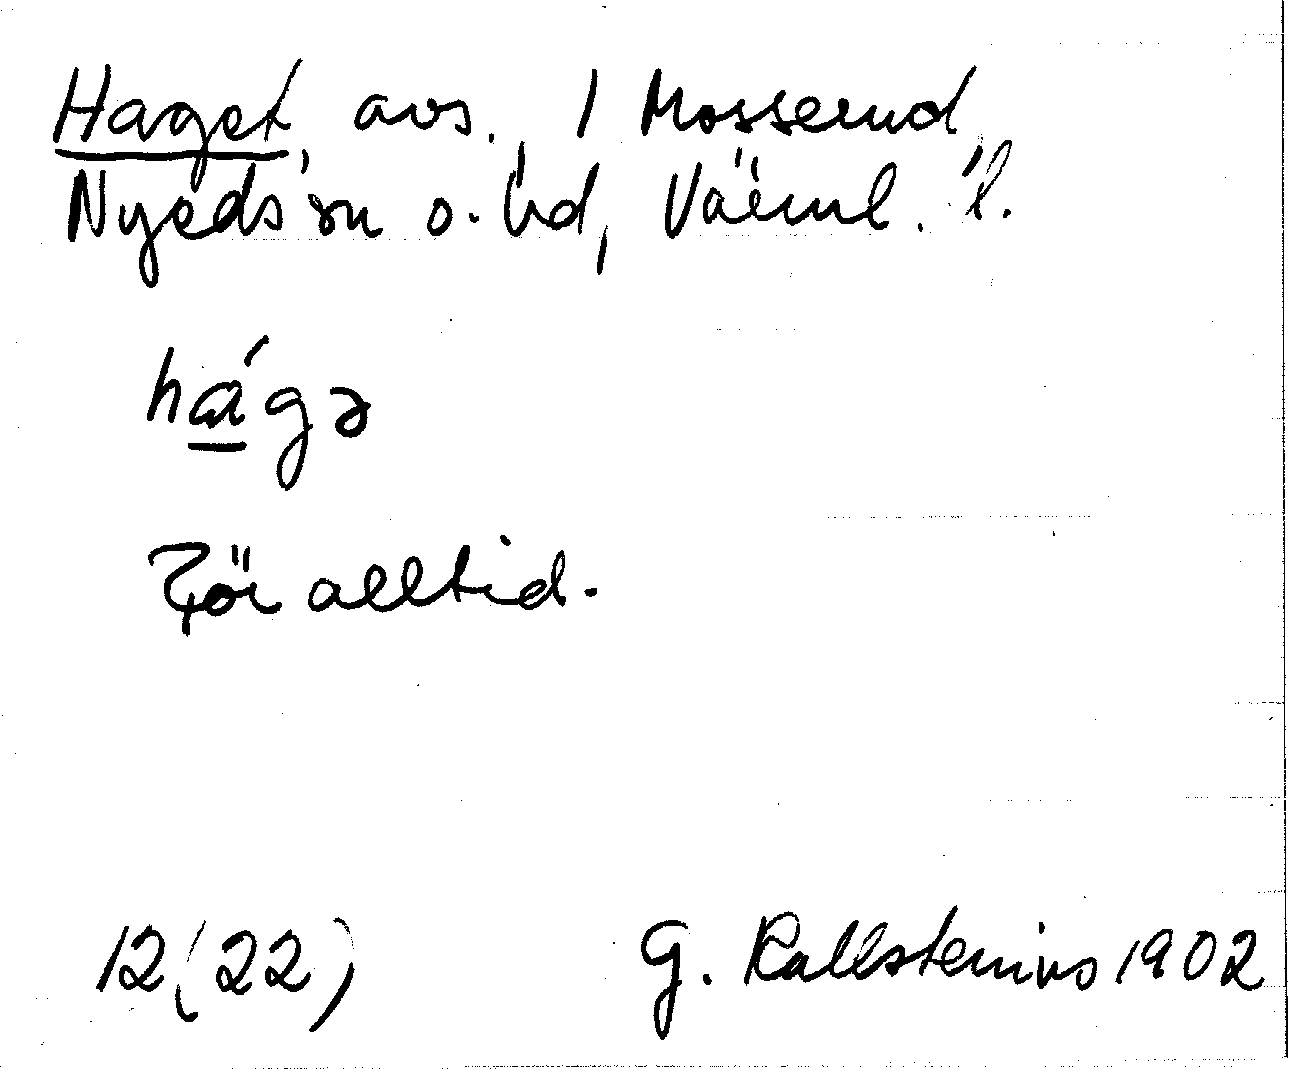 Haget, avs. 1 Mosserud,
Nyeds sn o. hd, Värml. l.
há̱gə
För alltid.
12(22) G. Kallstenius 1902